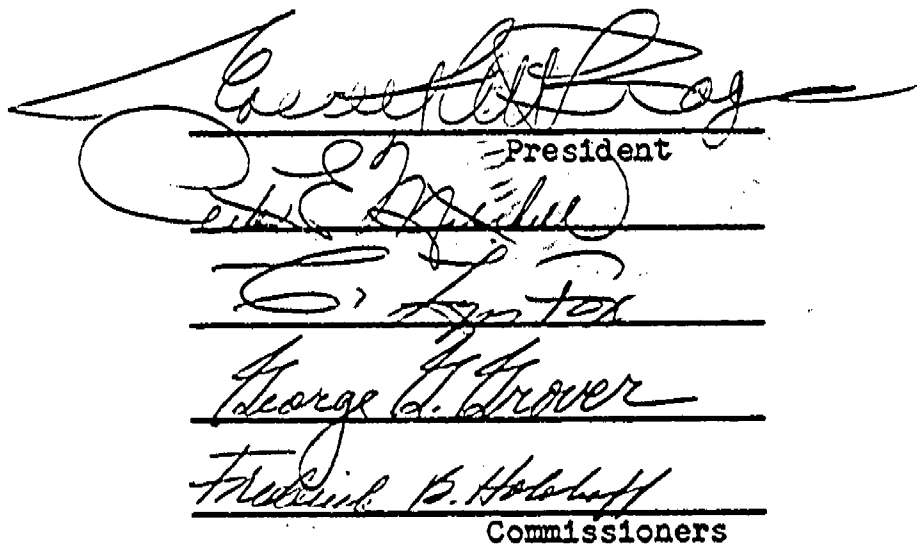 President
E. Mitchell
C. Lyn Fox
George G. Grover
Frederick B. Holoboff
Commissioners